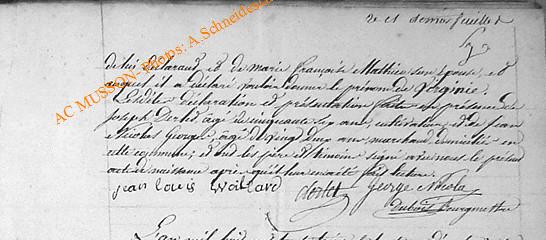 2e et dernier feuillet
de lui déclarant, et de marie françoise Mathieu son épouse, et
auquel il a déclaré vouloir donner le prénom de Virginie.
Lesdites déclaration et présentation faite en présence de
joseph Derlet, agé de cinquante six ans, cultivateur, et de jean
Nicolas George, agé de vingt deux ans, marchand domiciliés en
cette commune; et ont les père et témoin signé avec nous le présent
acte de naissance après qu'il leur en a été fait lecture.
jean louis Waillard derlet George Nicola
Dubois Bourgmettre
L'an mil huit
AC MUSSON- Props: A.Schneides